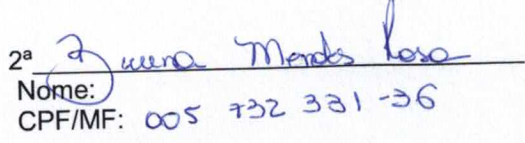 2ª Mendes Rosa
Nome:
CPF/MF: 005 732 331-36